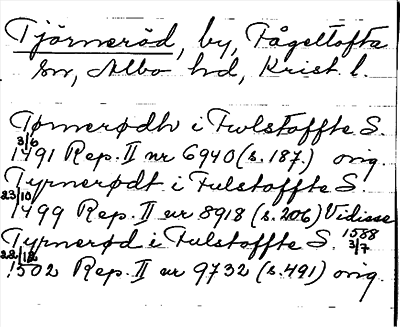 Tjörneröd, by, Fågeltofta
sn, Albo hd, Krist. l.
Tørnerødh i Fwlstoffte S.
3/6
1491 Rep. II nr 6940 (s. 187.) orig.
Tyrnerødt i Fulstoffte S.
23/10
1499 Rep. II nr 8918 (s. 206) Vidisse
Tyrnerød i Fulstoffte S. 1588 3/7
22/12
1502 Rep. II nr 9732 (s. 491) orig.